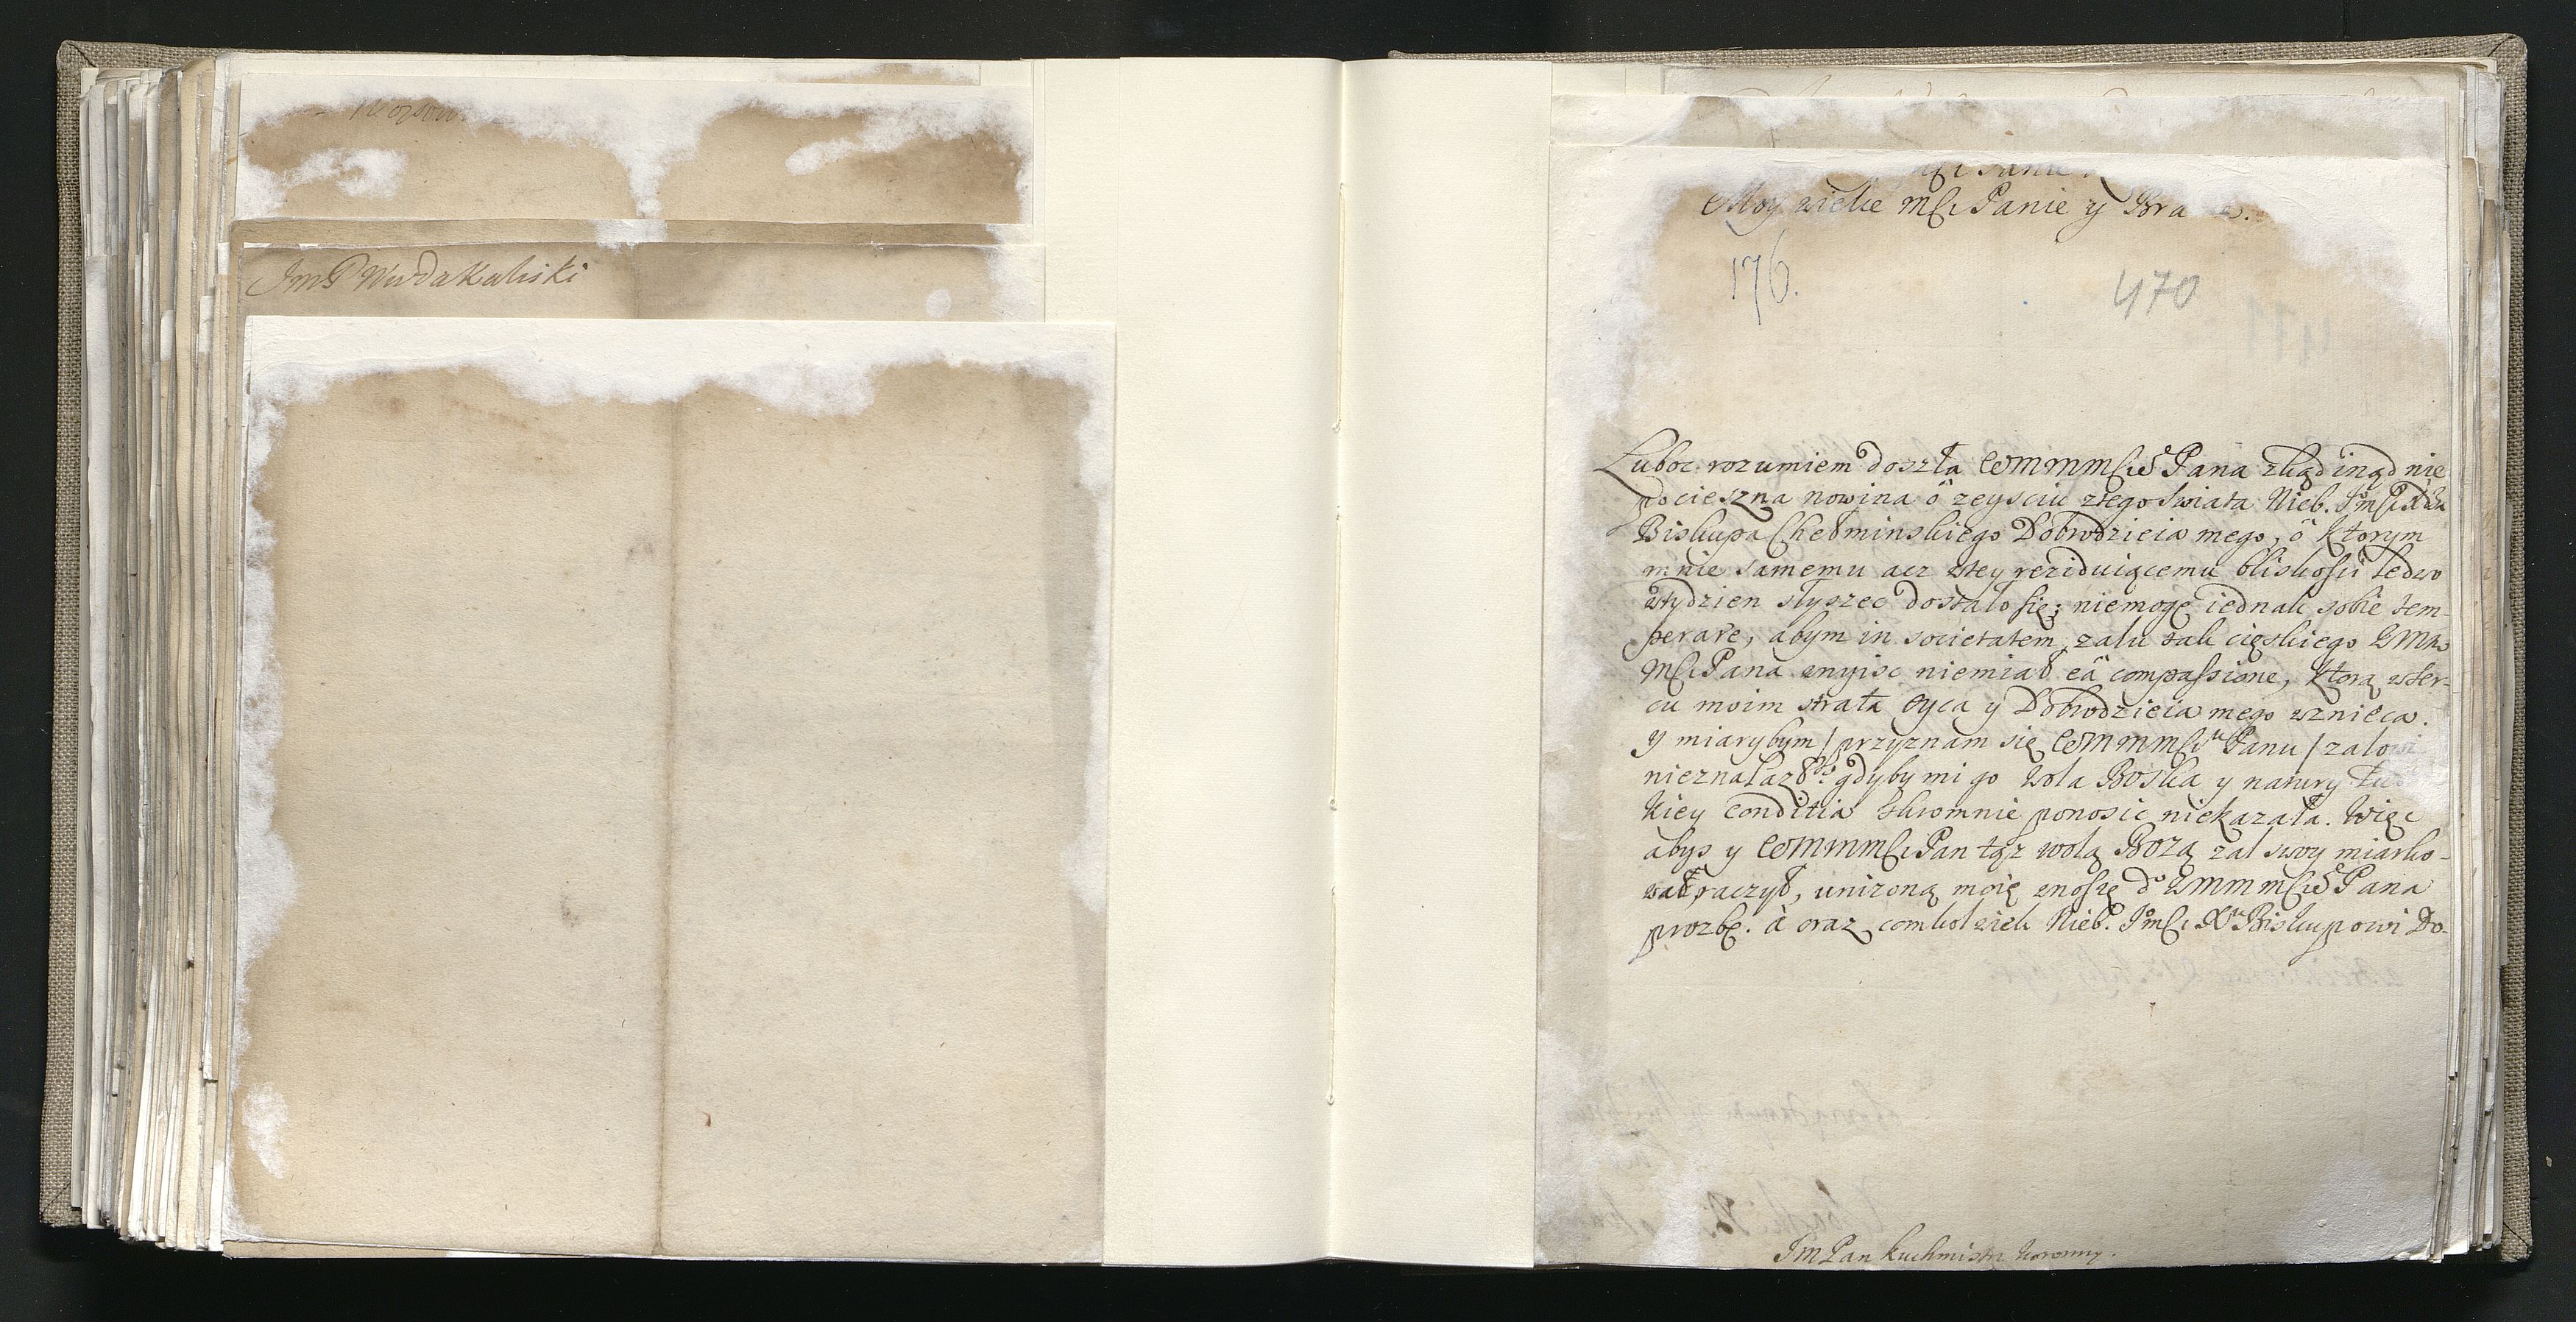 Jm P Wwda Kaliski
Mći Panie
Moy wielce Mći Panie y Bra
176.
470
Luboc rozumiem doszła WMMMćię Pana zkąd inąd nie
pocieszna nowina o zeysciu ztego swiata Nieb. JmCi Xdza
Biskupa Chełminskiego Dobrodzieia mego, o ktorym
mnie samemu acz wtey reziduiącemu bliskosci ledwo
wtydzien słyszec dostało się; niemogę iednak sobie tem-
perare, abym in societatem zalu tak cięskiego WMM
Mći Pana wnyisc niemiał eâ compassione, ktorą wser-
cu moim strata Oyca y Dobrodzieia mego wznieca.
Y miarybym / przyznam się WMMMćiu Panu / zalowi
nieznalazł gdyby mi go Wola Boska y natury
kiey Conditia skromnie ponosic niekazała. Więc
abys y WMMMći Pan tąz wolą Bozą zal swoy miarko-
wał raczył, unizoną moię wnoszę do WMMMćię Pana
prozbę. à oraz comkolwiek Nieb. JmCi Xu Biskupowi Do-
Jm Pan kuchmistrz koronny.